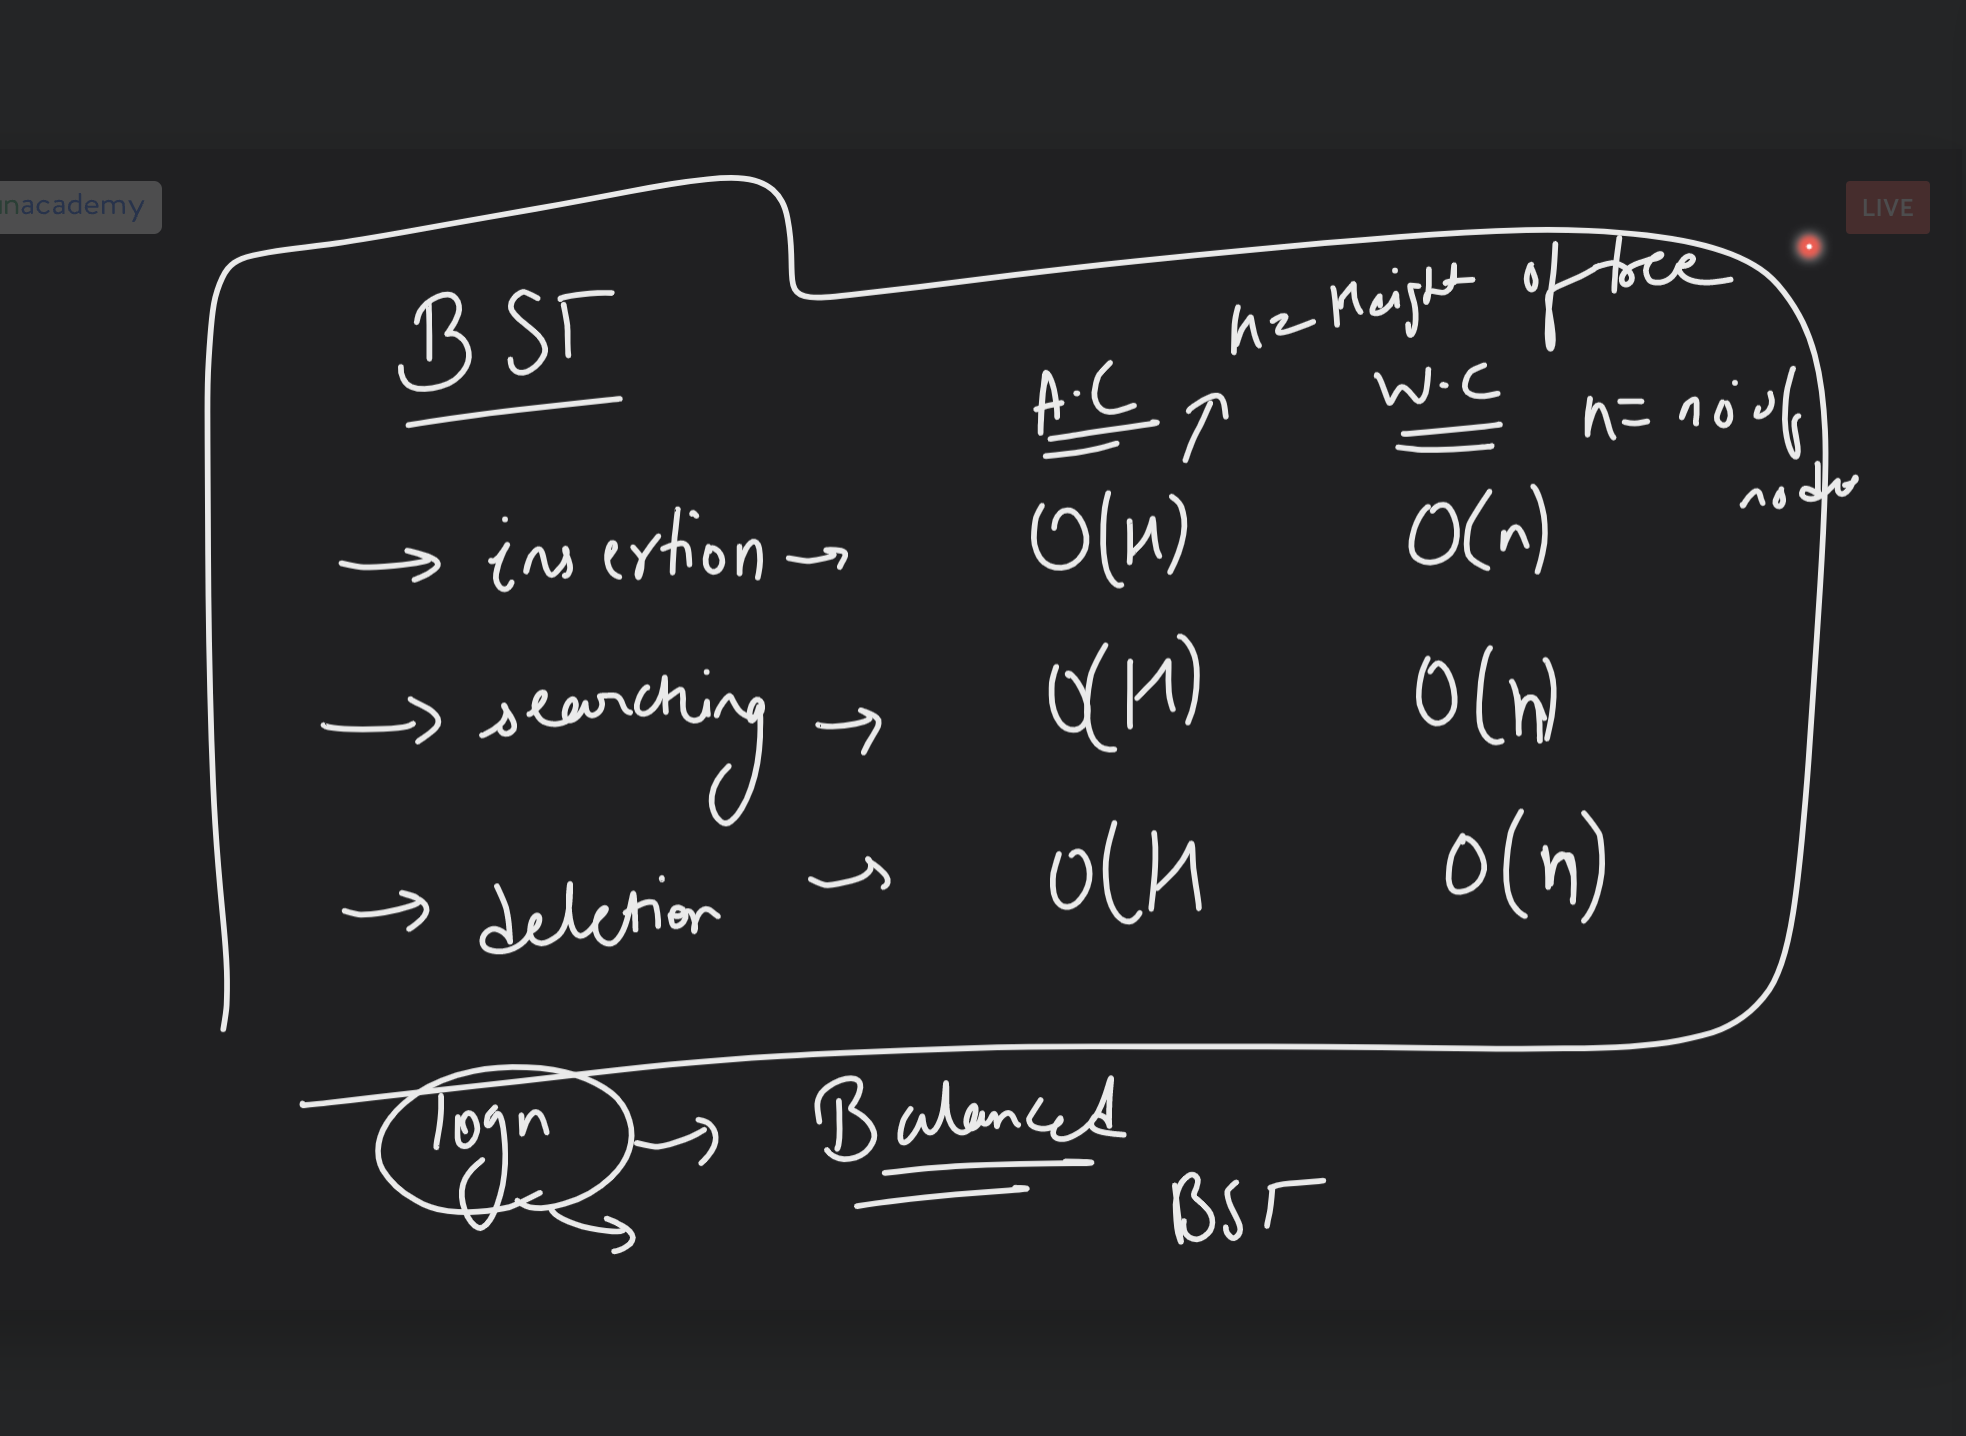 unacademy
LIVE
BST
H = Height of tree
A.C
W.C
n = no of
nodes
→ insertion → O(H) O(n)
→ searching → O(H) O(n)
→ deletion → O(H O(n)
logn → Balanced
BST